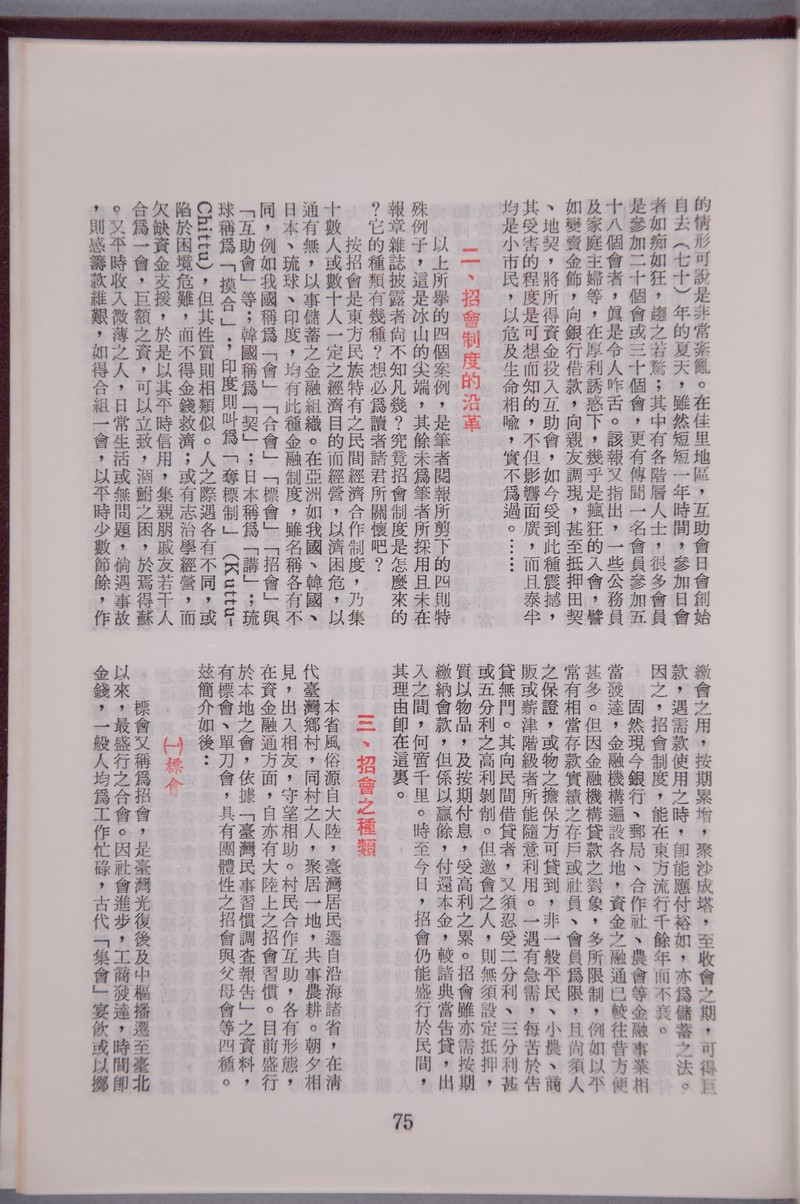 的情形可說是非常紊亂。在佳里地區，互助會日會創始
自去（七十）年的夏天，雖然短短一年時間，參加日會
者如痴如狂，趨之若鶩；其中有各階層人士，很多會員
是參加二十個會或三十個會，更有傳聞一名會員參加五
十八個會者，眞是令人咋舌。該報又指出，一些公務員
及家庭主婦等，在厚利誘惑下，幾乎是瘋狂的入會，譬
如變賣金飾，向銀行借款，向親友調現，甚至抵押田契
、地契，將所得資金投入互助會，如今受到此種震撼，
其受害的程度是可想而知的，不但影響面廣，而且泰半
均是小市民，以危及生命相喻，實不爲過。……
二、招會制度的沿革
以上所擧的四個案例，是筆者閱報所剪下的四則特
殊例子，這是冰山的尖端，其餘未爲筆者所採用且未在
報章雜誌披露者尙不知凡幾？究竟招會制度是怎麼來的
？它的種類有幾種？想必爲讀者諸君所關懷吧？
按招會是東方民族特有之民間經濟合作制度，乃集
十數人或數十人一定之經濟目的而經營，以濟困危，以
通有無，以事儲蓄之金融組織。在亞洲如我國、韓國、
日本、琉球、印度，均有此種金融制度，雖名稱各有不
同，例如我國稱爲「會」「合會」「標會」「招會」與
「互助會」等；韓國稱爲「契」；日本稱爲「講」；琉
球稱爲「摸合」；印度則叫爲「奪標制」（Kuttu-
Chittu），但其性質則相類似。人之際遇各有不同，或
陷於困境危難，而不得金錢救濟；或有志治學經營，而
欠缺資金支援，於是以其平時信用，集親朋戚友若干人
合爲一會，巨額之資，可以立致，涸鮒之困，於焉得蘇
。又平時收入微薄之人，日常生活或無問題，倘遇事故
，則感籌款維艱，如得合組一會，以平時少數節餘，作
繳會之用，按期累增，聚沙成塔，至收會之期，可得巨
款，遇需款使用之時，卽能應付裕如，亦爲儲蓄之法。
因之，招會制度，能在東方流行千餘年而不衰。
固然現今銀行、郵局、合作社、農會等金融事業相
當發達，金融機構遍設各地，資金之融通已較往昔方便
甚多。但因金融機構貸款之對象，多所限制，例如以平
常有相當存款實績之存戶或社員、會員爲限，且尙須人
之保證，或物之擔保方可貸到，非一般平民、小農、商
販或薪津階級者所能隨意利用。一遇有急需，每苦於告
貸無門。其向民間借貸者，又須忍受二分利、三分利甚
或五分利之高利剝削。但邀會之人，則無須設定抵押，
質以物品，及按期付息，受高利之累。招會雖亦需按期
繳納會款，但係以贏餘，付還本金，較諸典當告貸，出
入之間，何啻千里。時至今日，招會仍能盛行於民間，
其理由卽在這裏。
三、招會之種類
本省風俗源自大陸，臺灣居民遷自沿海諸省，在淸
代臺灣鄉村，同村之人，聚居一地，共事農耕。朝夕相
見，出入相友，守望相助。村民合作互助，各有形態，
在資金融通方面，自亦有大陸上之招會習慣。目前盛行
於本地之會，依據「臺灣民事習慣調查報告」之資料，
有標會、單刀會，具有團體性之招會與父母會等四種。
玆簡介如後：
㈠標會
標會又稱爲招會，是臺灣光復後及中樞播遷至臺北
以來，最盛行之合會。因社會進步，工商發達，時間卽
金錢，一般人均爲工作忙碌，古代「集會」宴飮或以擲
75